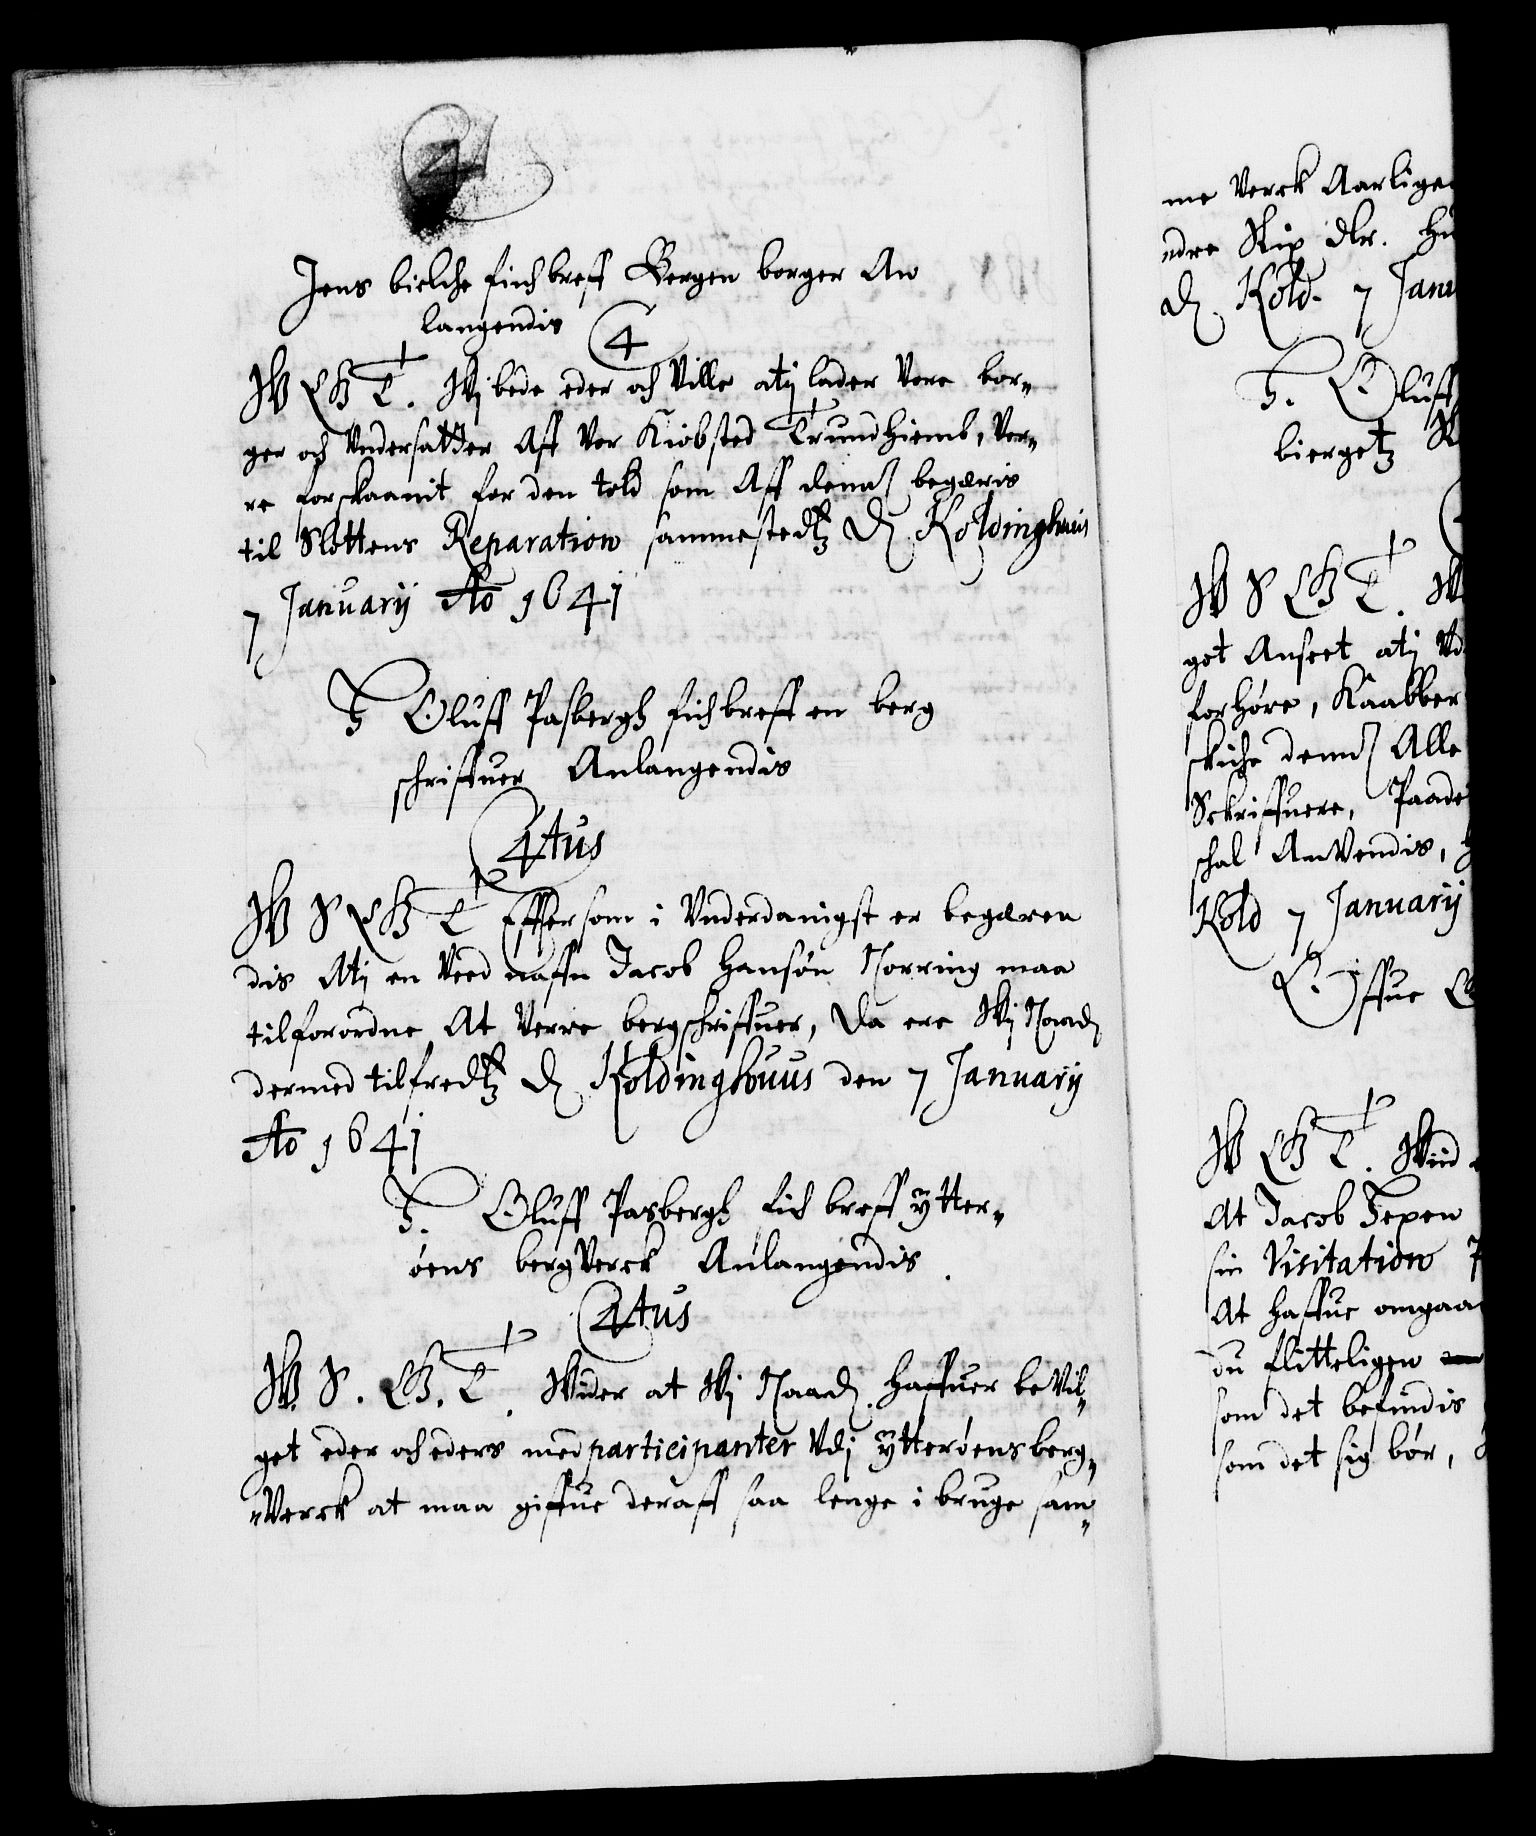 Jens bielche fich breff Bergen borger An
langendis 4
W G T. Wj bede eder och Ville atj lader Vore bor„
ger och Undersatter Aff Vor Kiøbsted Trundhiemb, Ver„
re forskaanit for den told som Aff denn begæris
til Slottens Reparation sammestedtz D. Koldinghuis
7 Januarij Ao 1641
H Oluff Pasbergh fich breff en berg
schriffuer Anlangendis
4tus
W S G T Effter som i Underdanigst er begæren
dis Atj en Veed naffn Jacob Hansøn Norring maa
tilforordne At Verre bergschriffuer, Da ere Wj Naad
dermed tilfredtz D. Koldinghuus den 7 Januarij
Ao 1641
H. Oluff Pasbergh fich breff ÿtter„
øens bergVerck Anlangendis.
4tus
W. S. G. T. Wider at Wj Naad. haffuer beVil„
get eder och eders medparticipanter Vdj ÿtterøens berg„
„Verck at maa giffue deraff saa lenge i bruge sam„
me Verck Aarlige
ndre Skip dlr. Hu
D. Kold. 7 Janu
H. Oluff
biergetz
W S G T. W
got Anseet atj Vd
forhøre, Kaabber
skiche denn Alle
Sckriffuere, Paade
schal AnVendis,
Kold 7 Januarij
Offue
W G T. Wiid
At Jacob Jepen
sin Visitation
At haffue omgaa
du flitteligen
som det befindis
som det sig bør,